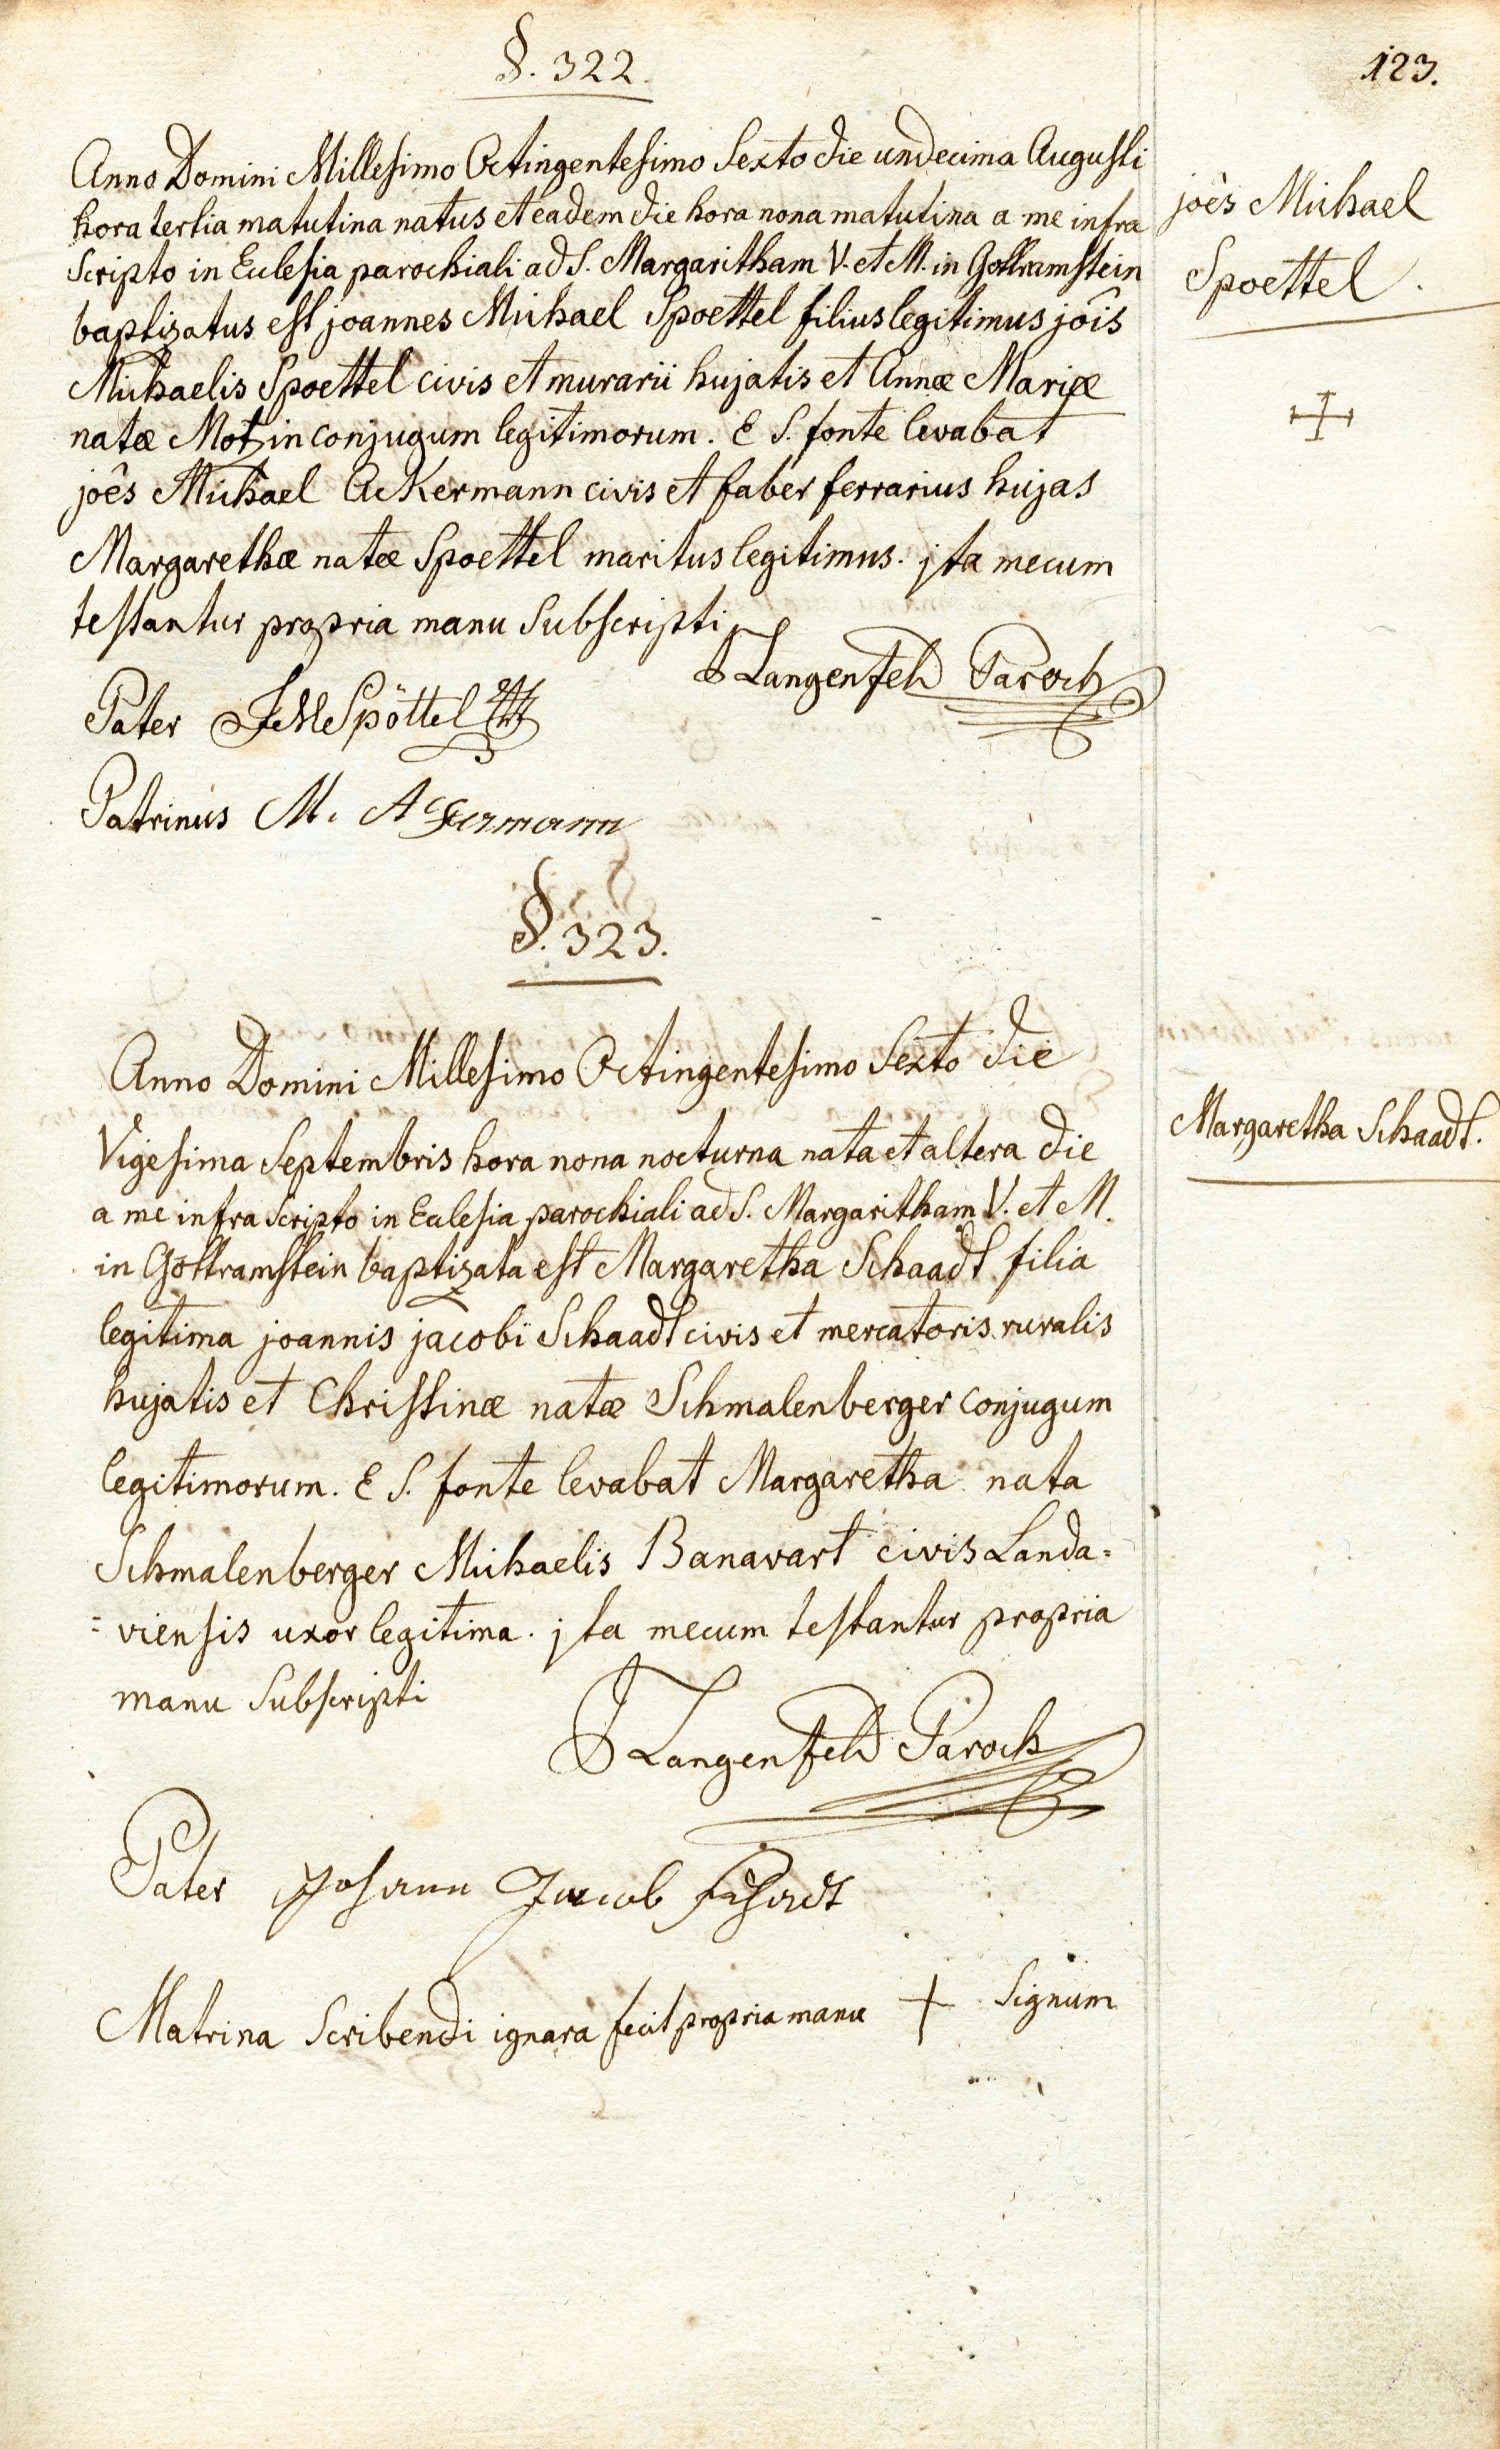 §. 322.
123.
Anno Domini Millesimo Octingentesimo Sexto die undecima Augusti
hora tertia matutina natus et eadem die hora nona matutina a me infra
scripto in Eclesia parochiali ad S. Margaritham V. et M. in Gottramstein
baptizatus est joannes Michael Spoettel filius legitimus joîs
Michaelis Spoettel civis et murarii hujatis et Annæ Mariæ
natæ Motzin conjugum legitimorum. E S. fonte levabat
joês Michael Ackermann civis et faber ferrarius hujas
Margarethæ natæ Spoettel maritus legitimus. jta mecum
testantur propria manu Subscripti
J Langenfeld Paroch
Pater Spöttel
Patrinus M. Ackermann
joês Michael
Spoettel.
§. 323.
Anno Domini Millesimo Octingentesimo Sexto die
Vigesima Septembris hora nona nocturna nata et altera die
a me infra scripto in Eclesia parochiali ad S. Margaritham V. et M.
in Göttramstein baptizata est Margaretha Schaadt filia
legitima joannis jacobi Schaadt civis et mercatoris ruralis
hujatis et Christinæ natæ Schmalenberger conjugum
legitimorum. E S. fonte levabat Margaretha nata
Schmalenberger Michaelis Banavart civis Landa=
=viensis uxor legitima. jta mecum testantur propria
manu Subscripti
J Langenfeld Paroch
Pater Johann Jacob Schadt
Matrina Scribendi ignara fecit propria manu + Signum
Margaretha Schaadt.